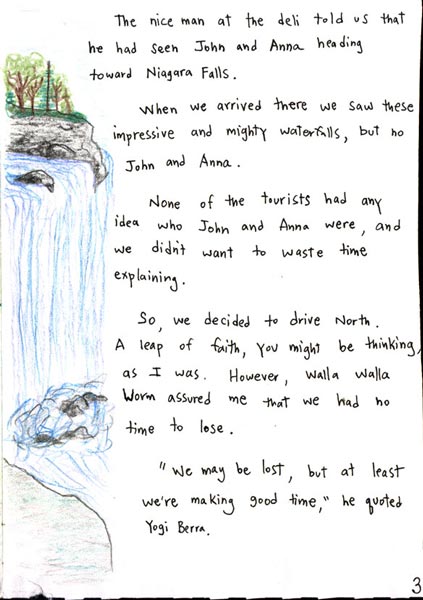 The nice man at the deli told us that
he had seen John and Anna heading
toward Niagara Falls.
When we arrived there we saw these
impressive and mighty waterfalls, but no
John and Anna.
None of the tourists had any
idea who John and Anna were, and
we didn't want to waste time
explaining.
So, we decided to drive North.
A leap of faith, you might be thinking,
as I was. However, Walla Walla
Worm assured me that we had no
time to lose.
"We may be lost, but at least
we're making good time," he quoted
Yogi Berra.
3